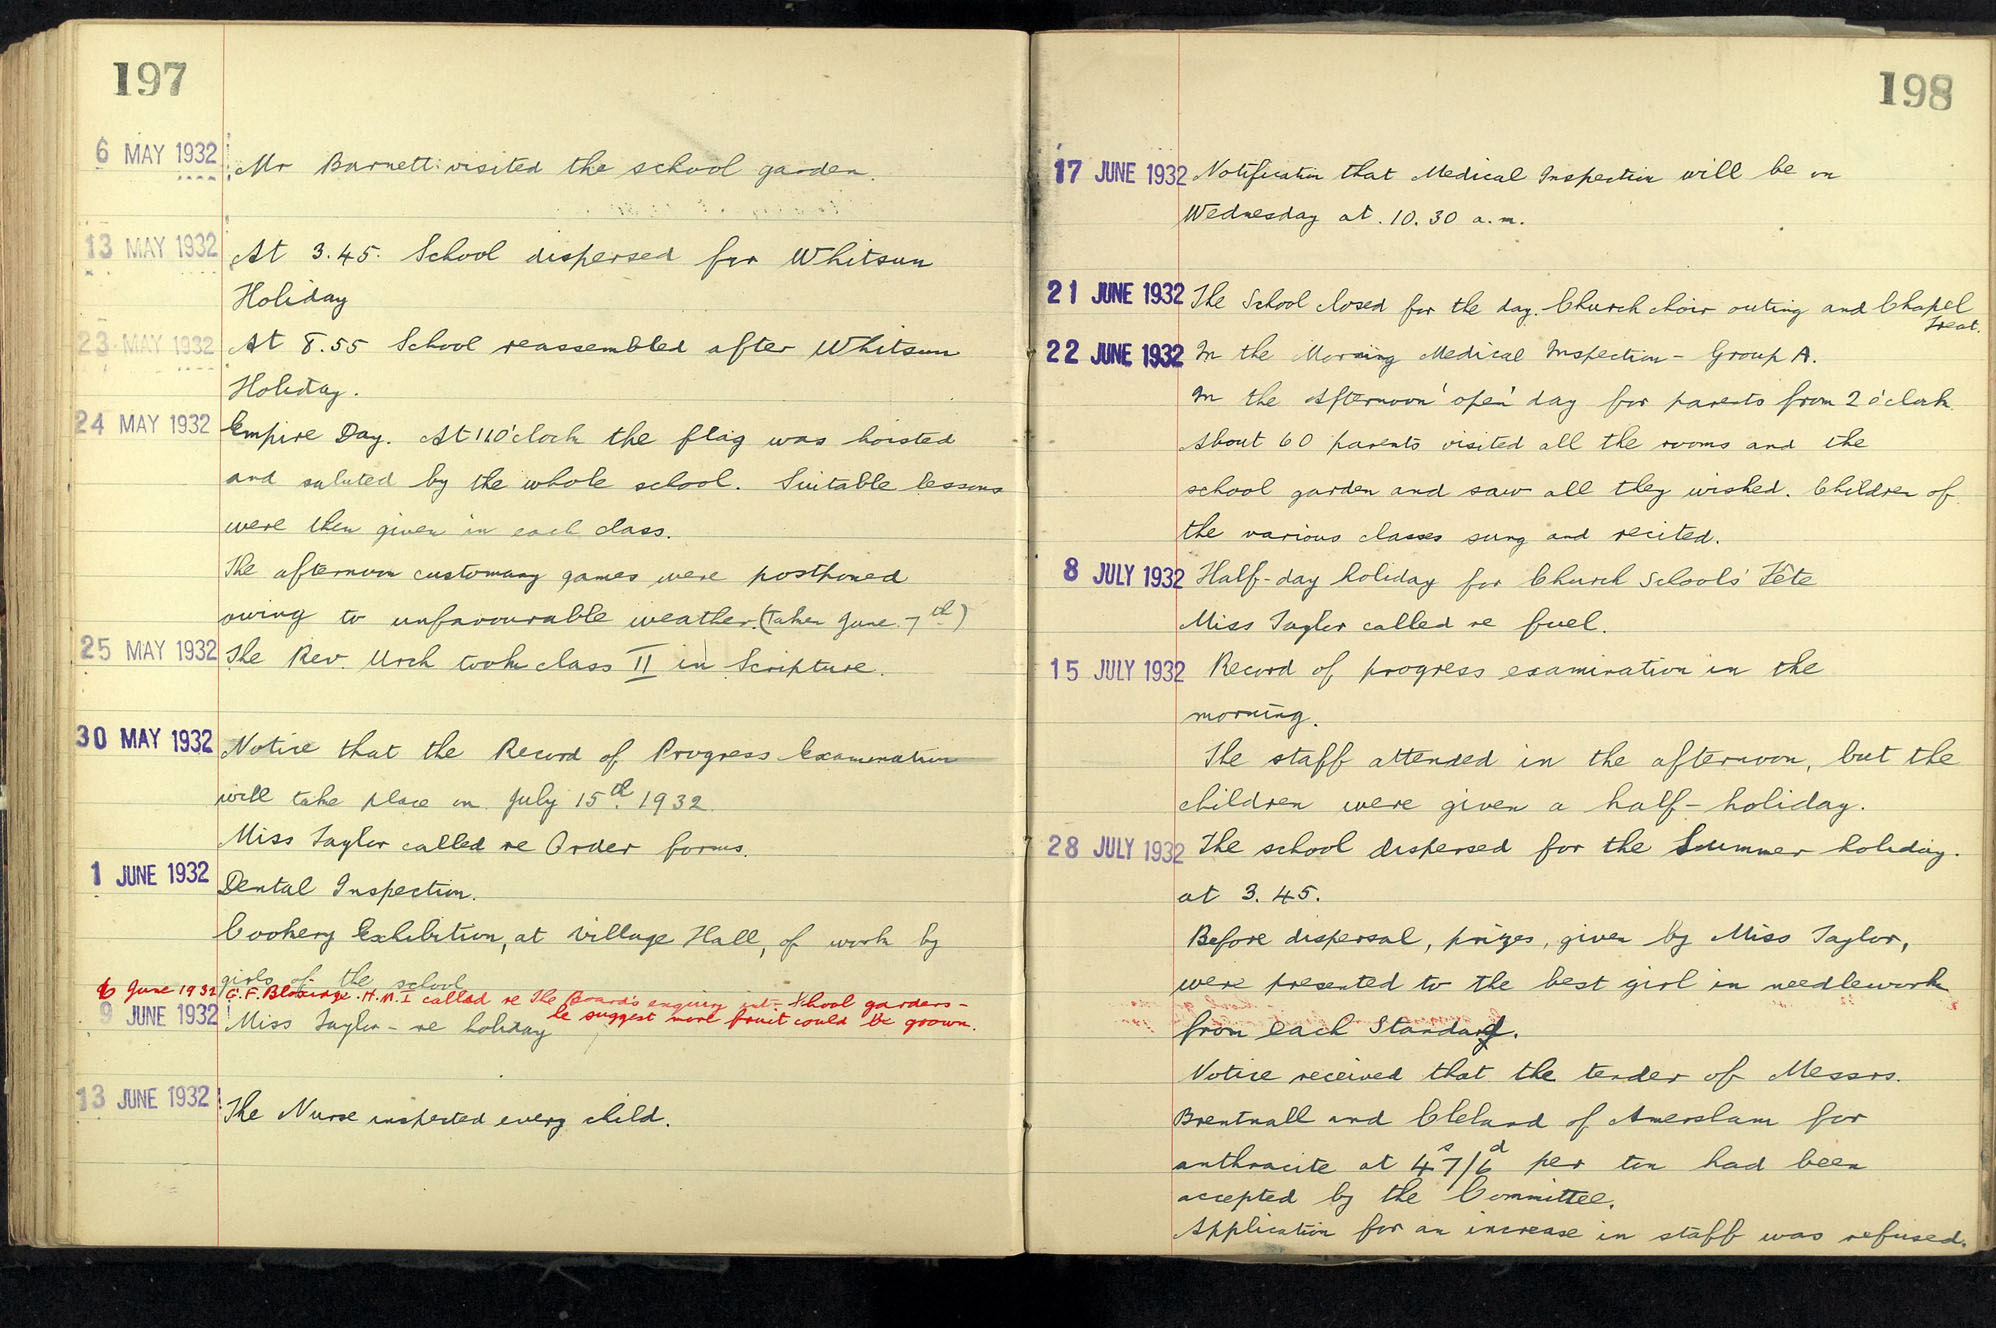 197
6 MAY 1932 Mr Barnett visited the school garden.
13 MAY 1932 At 3.45. School dispersed for Whitsun
Holiday
23 MAY 1932 At 8.55 School reassembled after Whitsun
Holiday.
24 MAY 1932 Empire Day. At 11 O'clock the flag was hoisted
and saluted by the whole school. Suitable lessons
were then given in each class.
The afternoon customary games were postponed
owing to unfavourable weather. (Taken June 7th)
25 MAY 1932 The Rev. Urch took class II in Scripture.
30 MAY 1932 Notice that the Record of Progress Examination
will take place on July 15th. 1932.
Miss Taylor called re Order forms.
1 JUNE 1932 Dental Inspection.
Cookery Exhibition, at Village Hall, of work by
girls of the school
6 June 1932 G.F. H.M.I called re The Board's enquiry into School gardens-
he suggest more fruit could be grown.
9 JUNE 1932 Miss Taylor - re holiday
13 JUNE 1932 The Nurse inspected every child.
198
17 JUNE 1932 Notification that Medical Inspection will be on
Wednesday at. 10.30 a.m.
21 JUNE 1932 The School closed for the day. Church choir outing and Chapel
Treat.
22 JUNE 1932 In the Morning Medical Inspection - Group A.
In the Afternoon 'open' day for parents from 2 o'clock.
About 60 parents visited all the rooms and the
school garden and saw all they wished. Children of
the various classes sung and recited.
8 JULY 1932 Half-day holiday for Church Schools' Fête
Miss Taylor called re fuel.
15 JULY 1932 Record of progress examination in the
morning.
The staff attended in the afternoon, but the
children were given a half-holiday.
28 JULY 1932 The school dispersed for the Summer holiday.
at 3.45.
Before dispersal, prizes, given by Miss Taylor,
were presented to the best girl in needlework
from each Standard.
Notice received that the tender of Messrs.
Brentnall and Cleland of Amersham for
anthracite at 47s/6d per ton had been
accepted by the Committee.
Application for an increase in staff was refused.